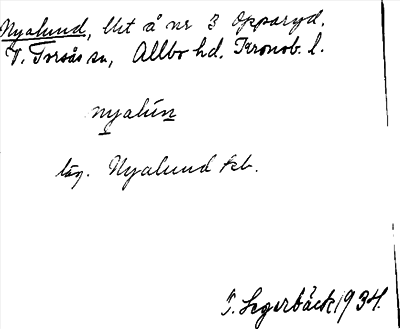 Nyalund, lht å nr 3 Opparyd.
V. Torsås sn, Allbo hd. Kronob. l.
nyalún
läg. Nyalund kb.
T. Segerbäck 1934.